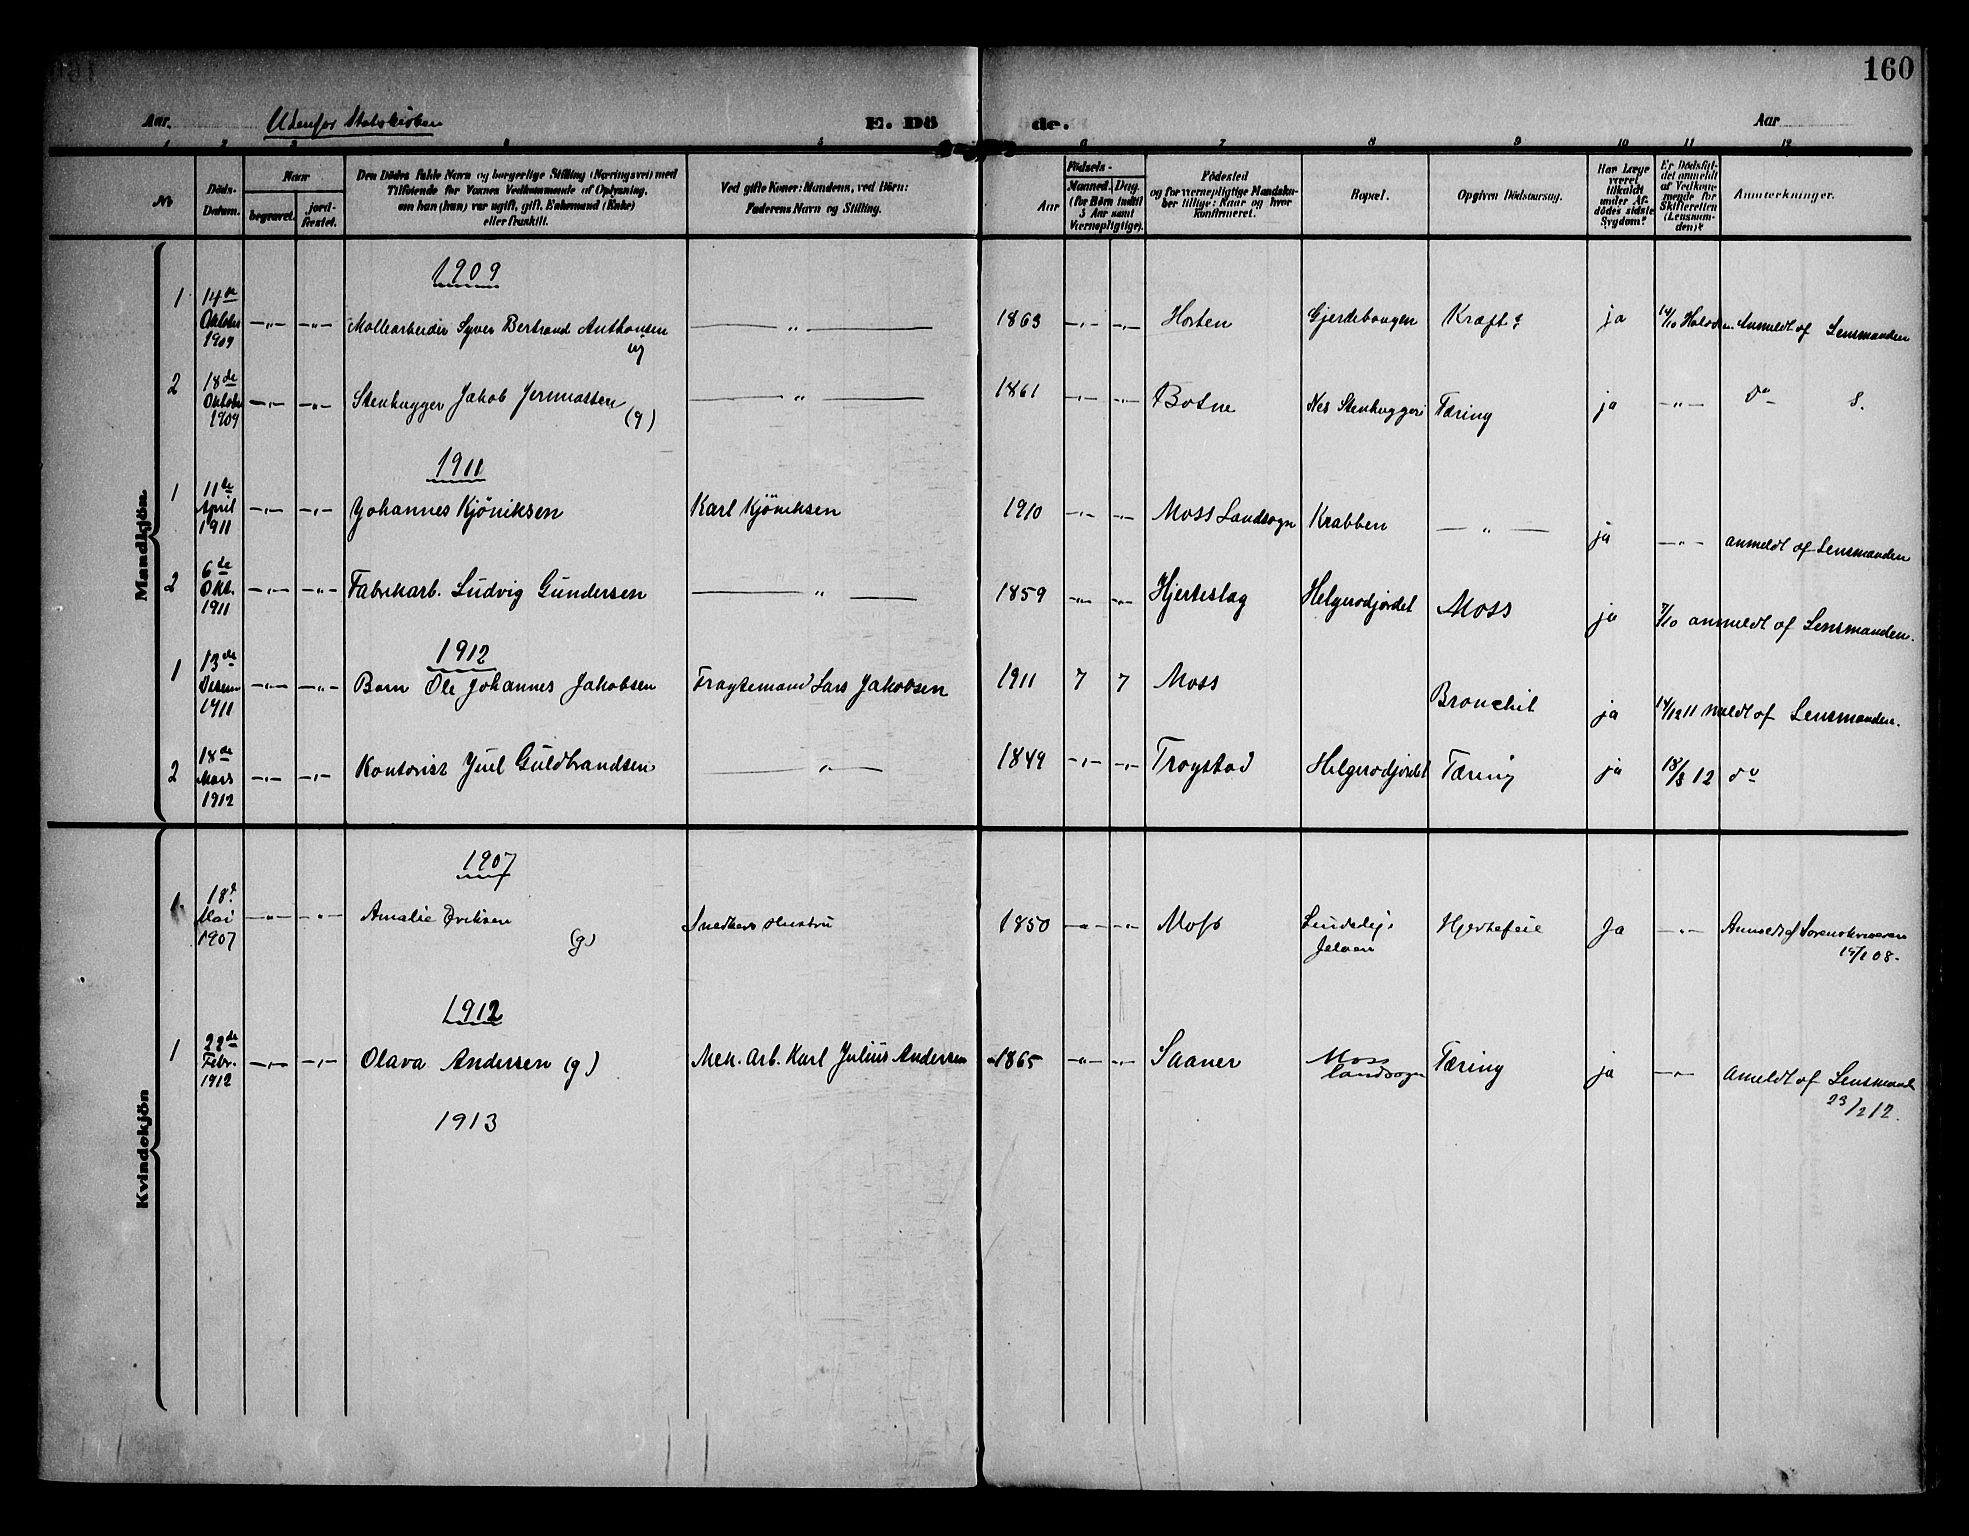 160
Aar. Udenfor Statskirken E. Dö de. Aar
1 2 3 4 5 6 7 8 9 10 11 12
No
Döds-Datum.
Naar
begravet.
jord-fæstet.
Den Dödes fulde Navn og borgerlige Stilling (Næringsvei) med
Tilföiende for Voxnes Vedkommende af Oplysning,
om han (hun) var ugift, gift, Enkemand (Enke)
eller fraskilt.
Ved gifte Koner: Mandens, ved Börn:
Faderens Navn og Stilling.
Födsels-
Aar
Maaned. Dag.
(for Börn indtil
3 Aar samt
Værnepligtige).
Födested
og for værnepligtige Mandskaber tillige: Naar og hvor
konfirmeret.
Bopæl.
Opgiven Dödsaarsag.
Har Læge
været
tilkaldt
under Afdödes sidste
Sygdom?
Er Dödsfaldet anmeldt
af Vedkommende for
Skifteretten
(Lensmanden)?
Anmærkninger.
Mandkjön
1909
1 14de Oktober 1909 —„— —„— Mollearbeider Syver Bertrand Anthonsen ug — „ — 1863 —„— —„— Horten Gjerdehaugen Kræft? ja 14/10 Anmeldt af Lensmanden
2 18de Oktober 1909 —„— —„— Stenhugger Jakob (g) — „ — 1861 —„— —„— Botne Nes Stenhuggeri Tæring ja —„— do 8.
1911
1 11te April 1911 —„— —„— Johannes Kjöniksen Karl Kjöniksen 1910 —„— —„— Moss Landsogn Krabben — „ — ja —„— anmeldt af Lensmanden
2 6te Okt. 1911 —„— —„— Fabrikarb. Ludvig Gundersen — „ — 1859 —„— —„— Hjerteslag Helgerodjordet Moss ja 7/10 anmeldt af Lensmanden.
1912
1 13de Desem 1911 —„— —„— Barn Ole Johannes Jakobsen Fragtemand Lars Jakobsen 1911 7 7 Moss Bronchit ja 14/12 11 meldt af Lensmanden.
2 18de Mars 1912 —„— —„— Kontorist Juel Guldbrandsen — „ — 1849 —„— —„— Trogstad Helgerodjordet Tæring ja 18/3 12 do
Kvindekjön
1907
1 18d Mai 1907 —„— —„— Amalie Eriksen (g) Snedkers Hustru 1850 —„— —„— Moss Jeløen Hjertefeil Ja —„— Anmeldt af Sorenskriveren
1912
1 22de Febr. 1912 —„— —„— Olava Andersen (g) Mek. Arb. Karl Julius Andersen 1865 —„— —„— Saaner Moss landsogn Tæring ja —„— Ameldt af Lensmand
23/2 12.
1913